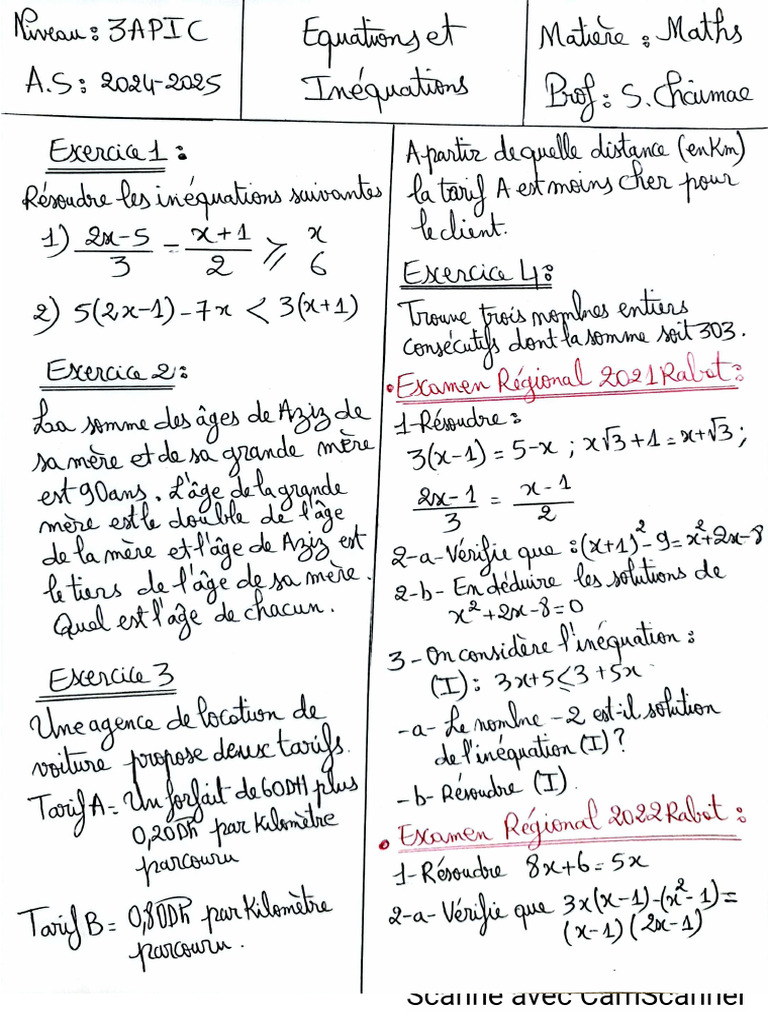 Niveau : 3APIC
A.S : 2024-2025
Equations et
Inéquations
Matière : Maths
Prof : S. Chaimae
Exercice 1 :
Résoudre les inéquations suivantes
1) (2x-5)/3 - (x+1)/2 ⩾ x/6
2) 5(2x-1)-7x < 3(x+1)
Exercice 2 :
La somme des âges de Aziz de
sa mère et de sa grande mère
est 90ans. L'âge de la grande
mère est le double de l'âge
de la mère et l'âge de Aziz est
le tiers de l'âge de sa mère.
Qual est l'âge de chacun.
Exercice 3
Une agence de location de
voiture propose deux tarifs.
Tarif A = Un forfait de 60DH plus
0,20Dh par Kilomètre
parcouru
Tarif B = 0,80Dh par Kilomètre
parcouru.
A partir de quelle distance (en Km)
la tarif A est moins cher pour
le client.
Exercice 4 :
Trouve trois nombres entiers
consécutifs dont la somme soit 303.
• Examen Régional 2021 Rabat :
1-Résoudre :
3(x-1) = 5-x ; x√3+1 = x+√3 ;
(2x-1)/3 = (x-1)/2
2-a-Vérifie que : (x+1)²-9 = x²+2x-8
2-b- En déduire les solutions de
x²+2x-8=0
3-On considère l'inéquation :
(I) : 3x+5 ⩽ 3+5x
-a- Le nombre -2 est-il solution
de l'inéquation (I) ?
-b- Résoudre (I).
• Examen Régional 2022 Rabat :
1-Résoudre 8x+6 = 5x
2-a-Vérifie que 3x(x-1)-(x²-1) =
(x-1)(2x-1)
Scanné avec CamScanner